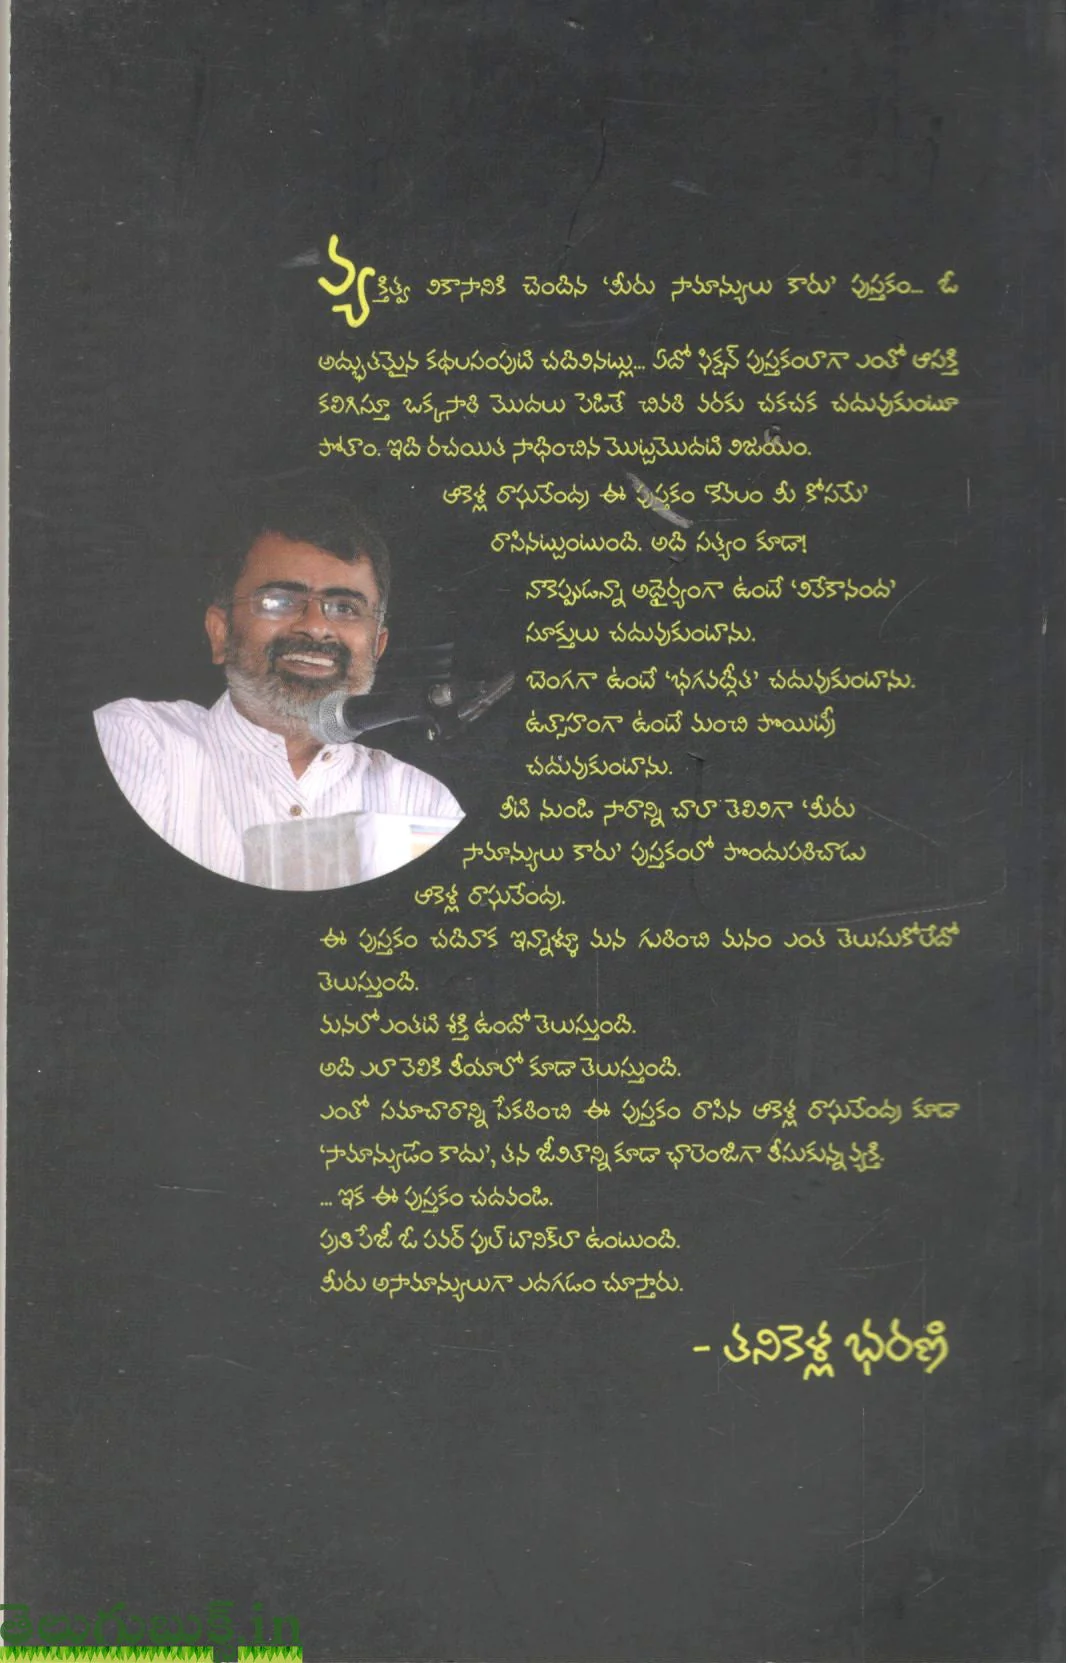 వ్యక్తిత్వ వికాసానికి చెందిన 'మీరు సామాన్యులు కారు' పుస్తకం... ఓ
అద్భుతమైన కథలసంపుటి చదివినట్లు... ఏదో ఫిక్షన్ పుస్తకంలాగా ఎంతో ఆసక్తి
కలిగిస్తూ ఒక్కసారి మొదలు పెడితే చివరి వరకు చకచక చదువుకుంటూ
పోతాం. ఇది రచయిత సాధించిన మొట్టమొదటి విజయం.
ఆకెళ్ల రాఘవేంద్ర ఈ పుస్తకం 'కేవలం మీ కోసమే'
రాసినట్టుంటుంది. అది సత్యం కూడా!
నాకెప్పుడన్నా అధైర్యంగా ఉంటే 'వివేకానంద'
సూక్తులు చదువుకుంటాను.
బెంగగా ఉంటే 'భగవద్గీత' చదువుకుంటాను.
ఉత్సాహంగా ఉంటే మంచి పొయిట్రీ
చదువుకుంటాను.
వీటి నుండి సారాన్ని చాలా తెలివిగా 'మీరు
సామాన్యులు కారు' పుస్తకంలో పొందుపరిచాడు
ఆకెళ్ల రాఘవేంద్ర.
ఈ పుస్తకం చదివాక ఇన్నాళ్ళూ మన గురించి మనం ఎంత తెలుసుకోలేదో
తెలుస్తుంది.
మనలో ఎంతటి శక్తి ఉందో తెలుస్తుంది.
అది ఎలా వెలికి తీయాలో కూడా తెలుస్తుంది.
ఎంతో సమాచారాన్ని సేకరించి ఈ పుస్తకం రాసిన ఆకెళ్ల రాఘవేంద్ర కూడా
'సామాన్యుడేం కాదు', తన జీవితాన్ని కూడా ఛాలెంజిగా తీసుకున్న వ్యక్తి.
... ఇక ఈ పుస్తకం చదవండి.
ప్రతి పేజీ ఓ పవర్ ఫుల్ టానిక్‌లా ఉంటుంది.
మీరు అసామాన్యులుగా ఎదగడం చూస్తారు.
- తనికెళ్ల భరణి
తెలుగుబుక్స్.in